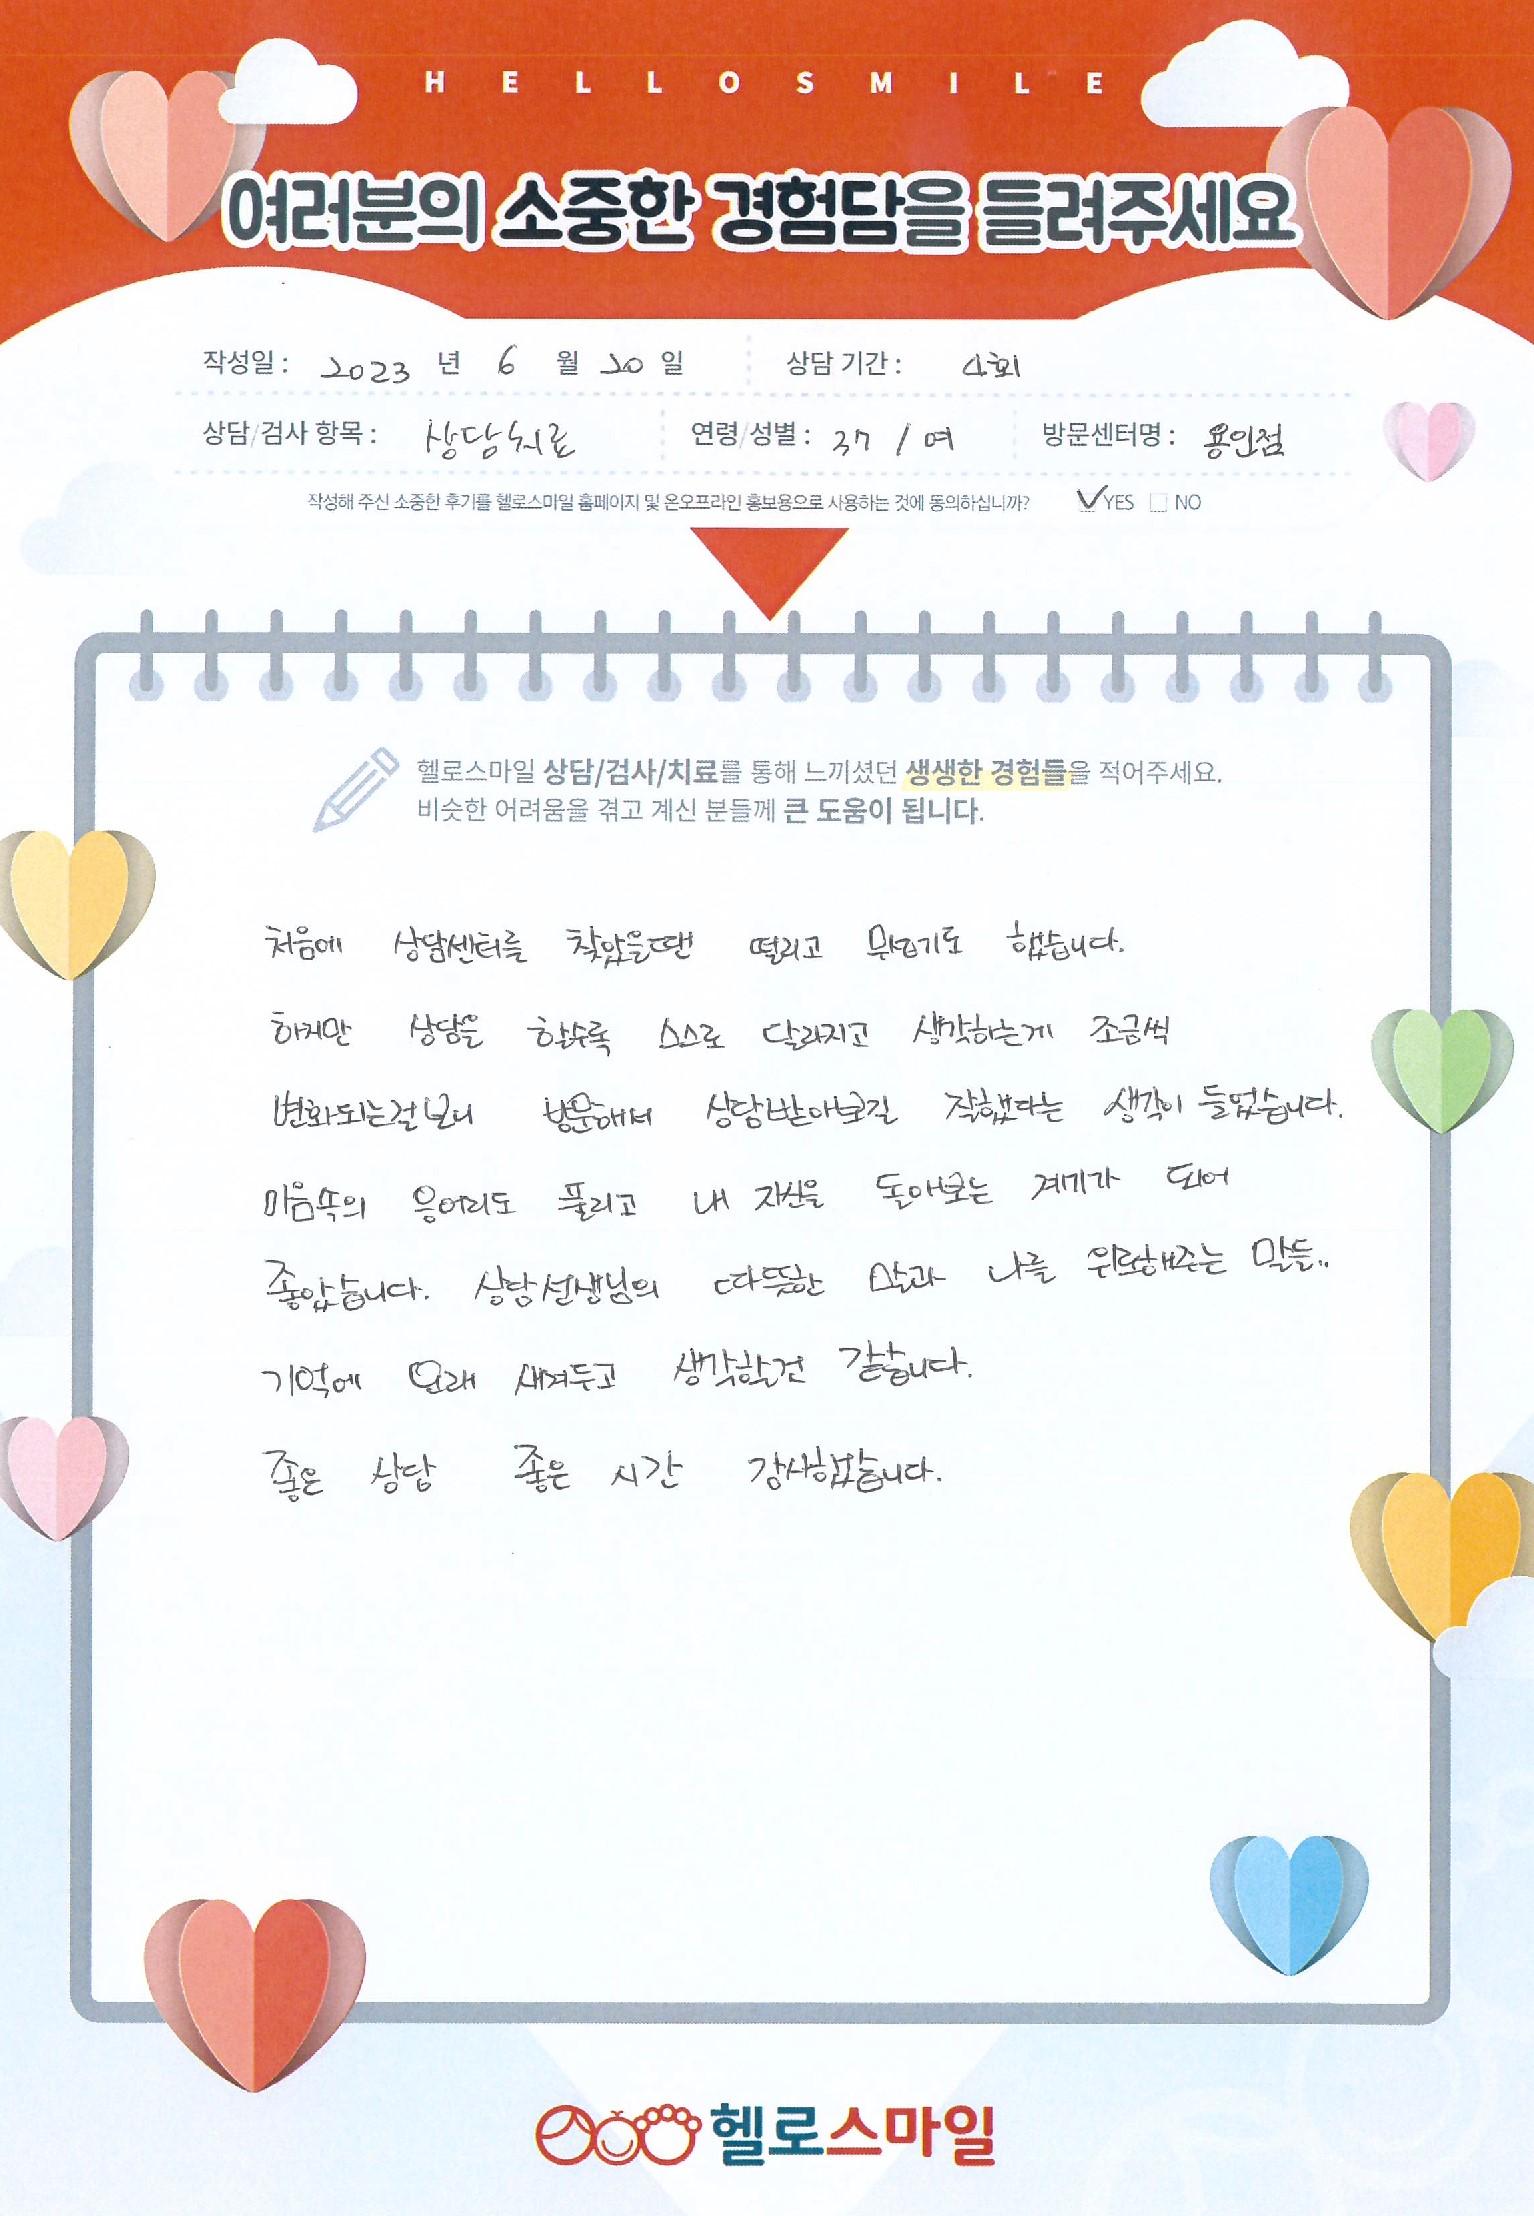 HELLOSMILE
여러분의 소중한 경험담을 들려주세요
작성일 : 2023 년 6 월 20 일 상담 기간 : 4회
상담/검사 항목 : 상담치료 연령/성별 : 37 / 여 방문센터명 : 용인점
작성해 주신 소중한 후기를 헬로스마일 홈페이지 및 온오프라인 홍보용으로 사용하는 것에 동의하십니까? ✓YES □ NO
헬로스마일 상담/검사/치료를 통해 느끼셨던 생생한 경험들을 적어주세요.
비슷한 어려움을 겪고 계신 분들께 큰 도움이 됩니다.
처음에 상담센터를 찾았을땐 떨리고 무섭기도 했습니다.
하지만 상담을 할수록 스스로 달라지고 생각하는게 조금씩
변화되는걸보니 방문해서 상담받아보길 잘했다는 생각이 들었습니다.
마음속의 응어리도 풀리고 내 자신을 돌아보는 계기가 되어
좋았습니다. 상담선생님의 따뜻한 말과 나를 위로해주는 말들..
기억에 오래 새겨두고 생각할것 같습니다.
좋은 상담 좋은 시간 감사했습니다.
헬로스마일